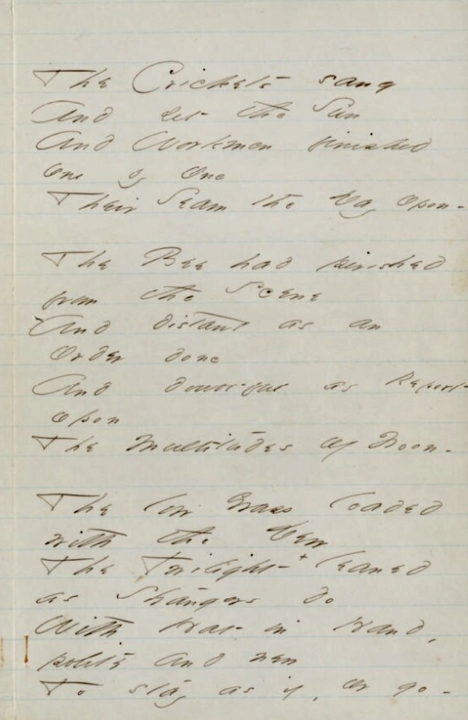 The Crickets sang
And set the Sun
And Workmen finished
One by One
Their Seam the Day upon -
The Bee had perished
from the Scene
And distant as an
Order done
And doubtful as Report
upon
The Multitudes of Noon -
The low Grass loaded
with the Dew
The Twilight + leaned
as Strangers do
With Hat in Hand,
polite and new
To stay as if, or go -